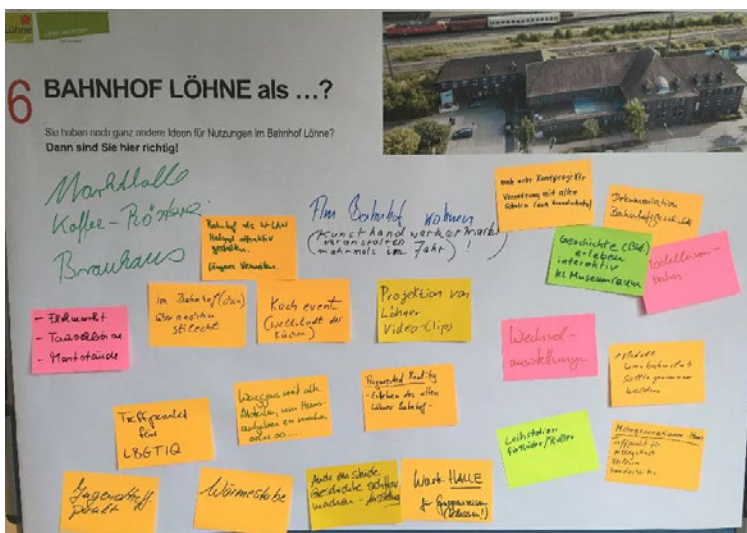 Löhne
6
BAHNHOF LÖHNE als ...?
Sie haben noch ganz andere Ideen für Nutzungen im Bahnhof Löhne?
Dann sind Sie hier richtig!
Markthalle
Kaffee-Rösterei
Brauhaus
Am Bahnhof wohnen
(Kunsthandwerkermarkt
veranstalten
mehrmals im Jahr)!
Bahnhof als
attraktiv
gestalten.
längeres Verweilen.
noch mehr Kunstprojekte
Vernetzung mit allen
Schulen
Dokumentation
Bahnhofsgeschichte
Geschichte
erleben
interaktiv
kl. Museumsraum
Modelleisen-
bahn
- Flohmarkt
- Tauschbörse
- Marktstände
Im Bahnhof
übernachten
stilecht
Koch event
(Weltstadt der
Küchen)
Projektion von
Löhner
Video-Clips
Wechsel-
ausstellungen
Treffpunkt
für
LBGTIQ
Waggons mit alten
Abteilen, um Haus-
aufgaben zu machen
oder so ...
Augmented Reality
- Erleben des alten
Löhner Bahnhof -
Leihstation
für Räder/Roller
Mehrgenerationen-Haus
Jugendtreff
punkt
Wärmestube
Auch
Geschichte sichtbar
machen - Ausstellung
Wart. HALLE
für Gruppenreisen
(Klassen!)